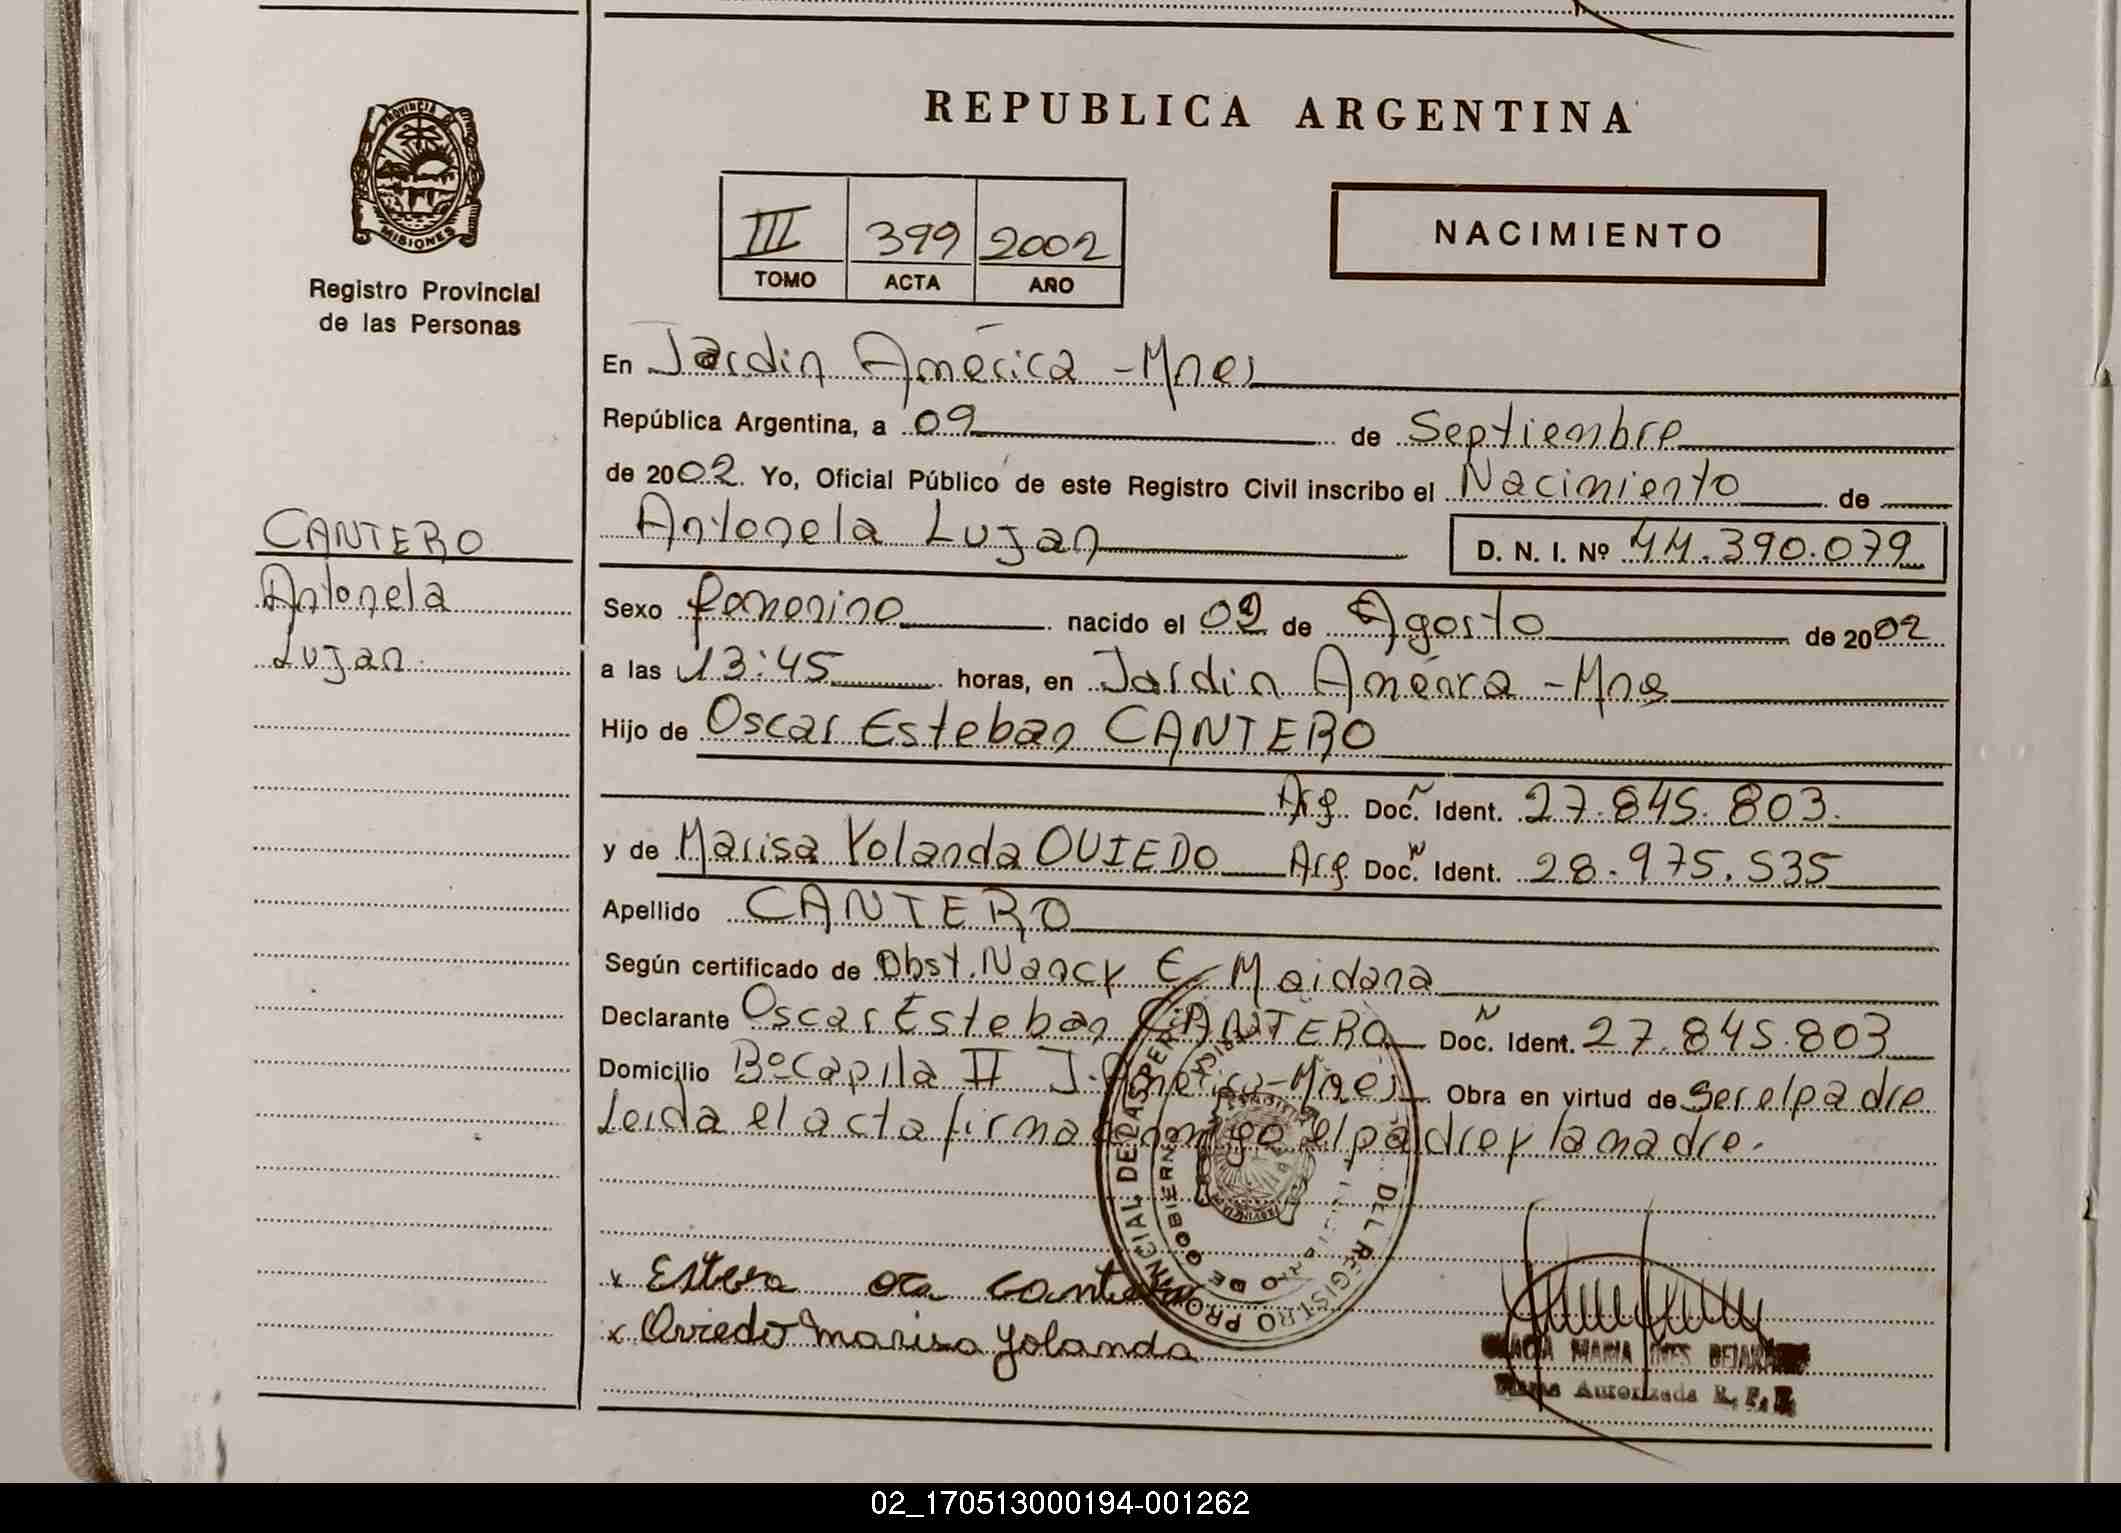 REPUBLICA ARGENTINA
PROVINCIA DE
MISIONES
Registro Provincial
de las Personas
III 399 2002
TOMO ACTA AÑO
NACIMIENTO
En Jardin América - Mnes
República Argentina, a 09 de Septiembre
de 2002. Yo, Oficial Público de este Registro Civil inscribo el Nacimiento de
Antonela Lujan D. N. I. Nº 44.390.079
CANTERO
Antonela
Lujan
Sexo femenino nacido el 09 de Agosto de 2002
a las 13:45 horas, en Jardin América - Mnes
Hijo de Oscar Esteban CANTERO
Arg. Doc. Ident. 27.845.803.
y de Marisa Yolanda OVIEDO Arg. Doc. Ident. 28.975.535
Apellido CANTERO
Según certificado de Obst. Nancy E. Maidana
Declarante Oscar Esteban CANTERO Doc. Ident. 27.845.803
Domicilio Bº Capila II J. América - Mnes Obra en virtud de ser el padre
Leida el acta firma conmigo el padre y la madre.
x Esteva oca canten
x Oviedo marisa yolanda
MARIA INES
Firma Autorizada R. P. P.
02_170513000194-001262